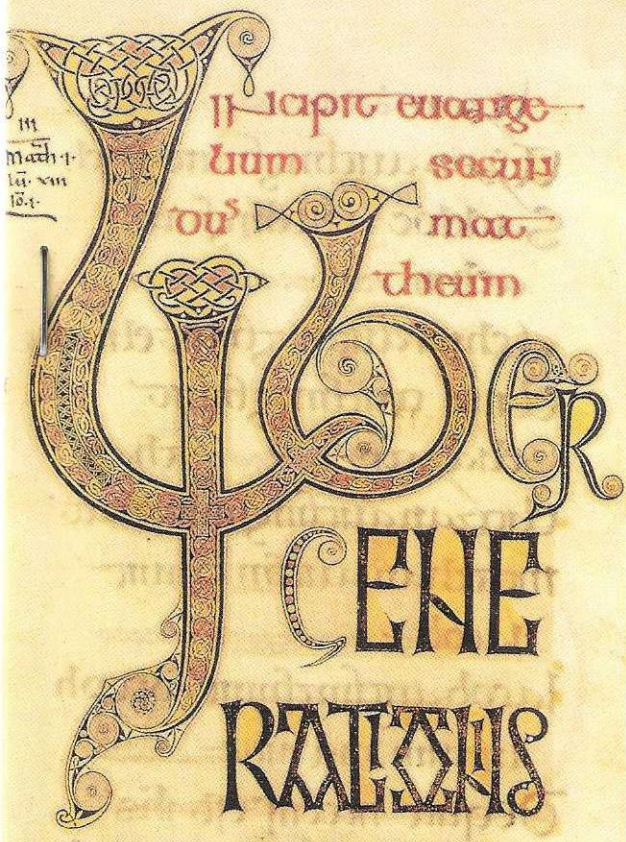 III
Math · I ·
lū ·
iō · I ·
Incipit euange
lium secun
dus mat
theum
LIBER
GENE
RATIONIS